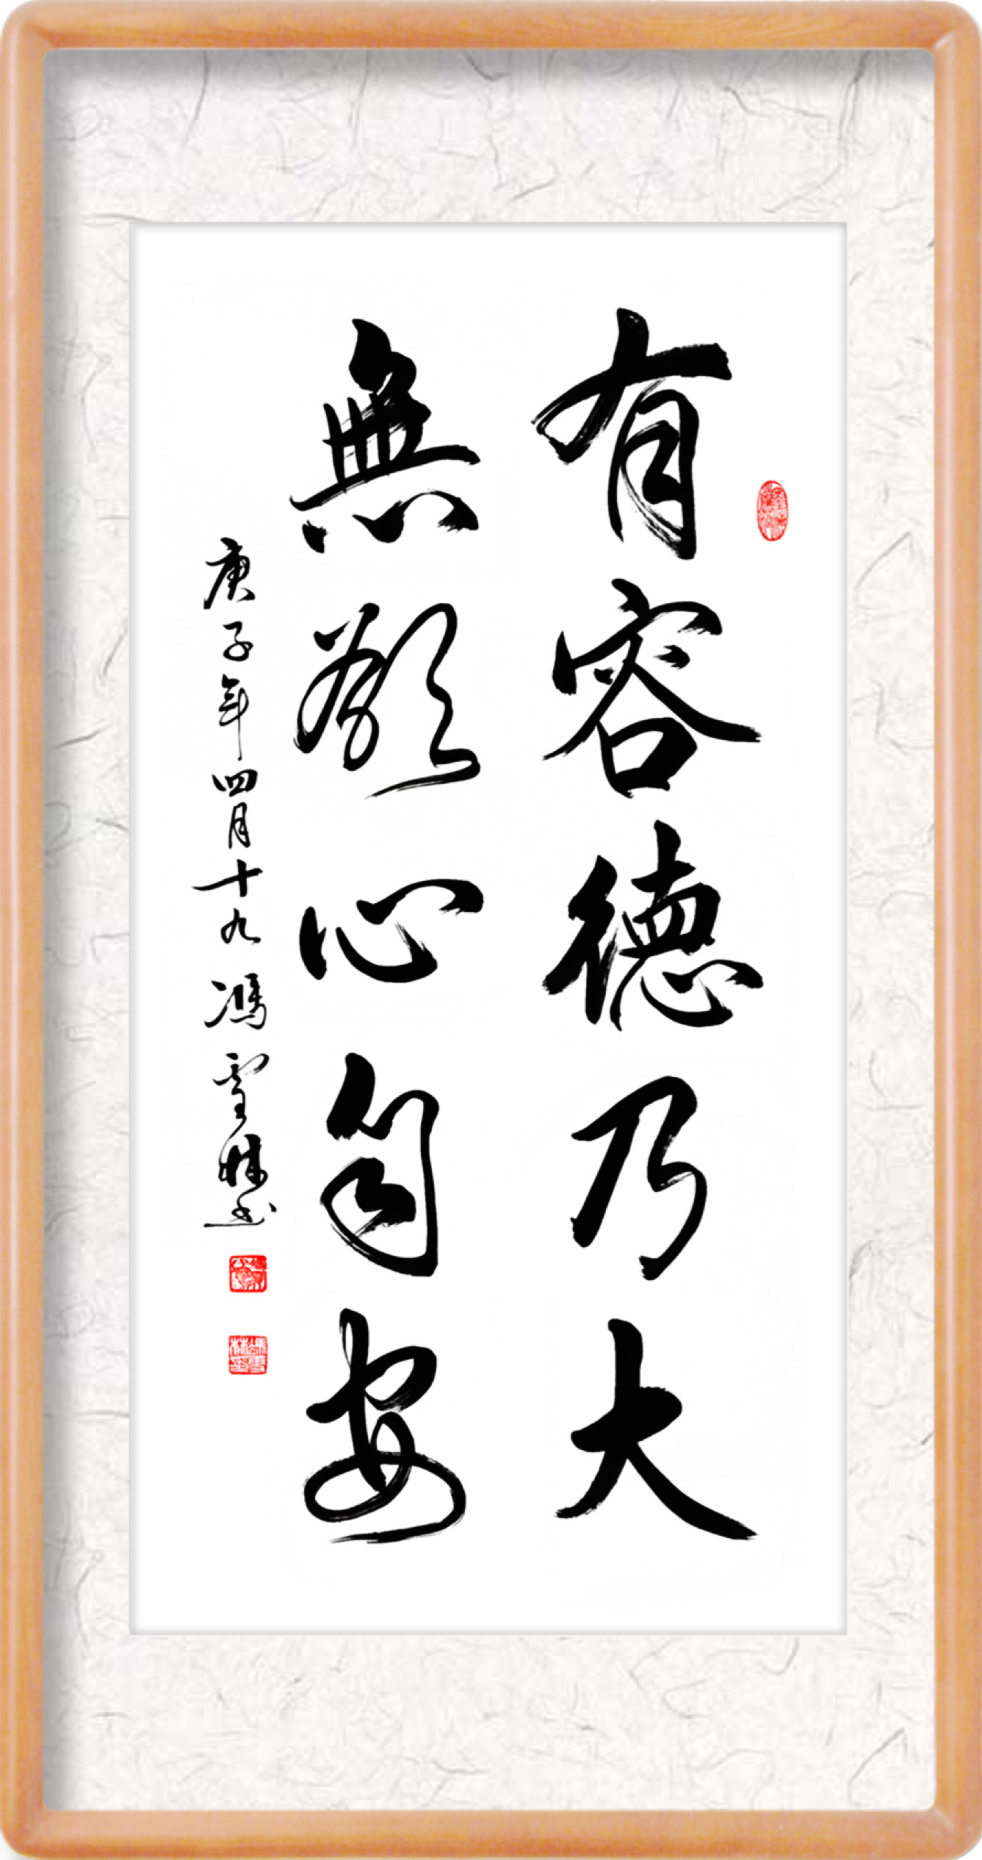 有容德乃大
無欲心自安
庚子年四月十九 馮雪林書